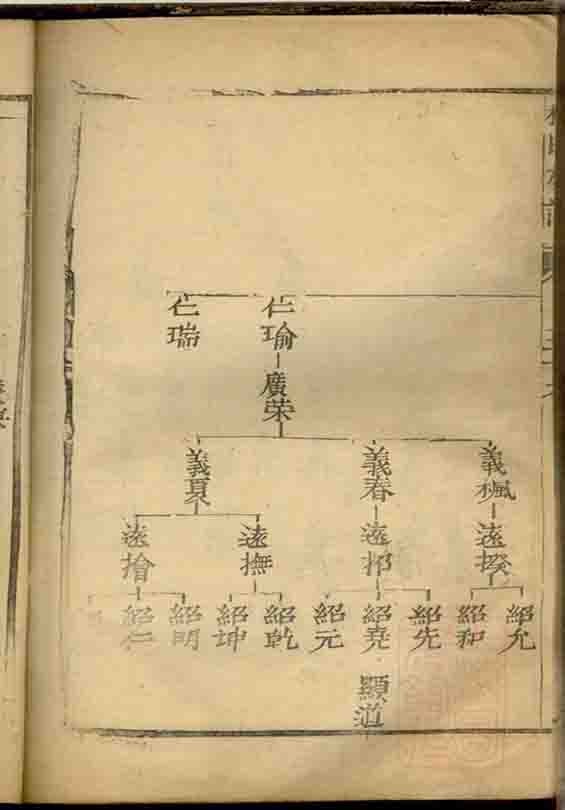 仁瑜
仁瑞
廣荣
義楓
義春
義夏
遠揆
遠撫
紹允
紹和
紹先
紹堯
紹元
紹乾
紹坤
紹明
紹仁
顯道